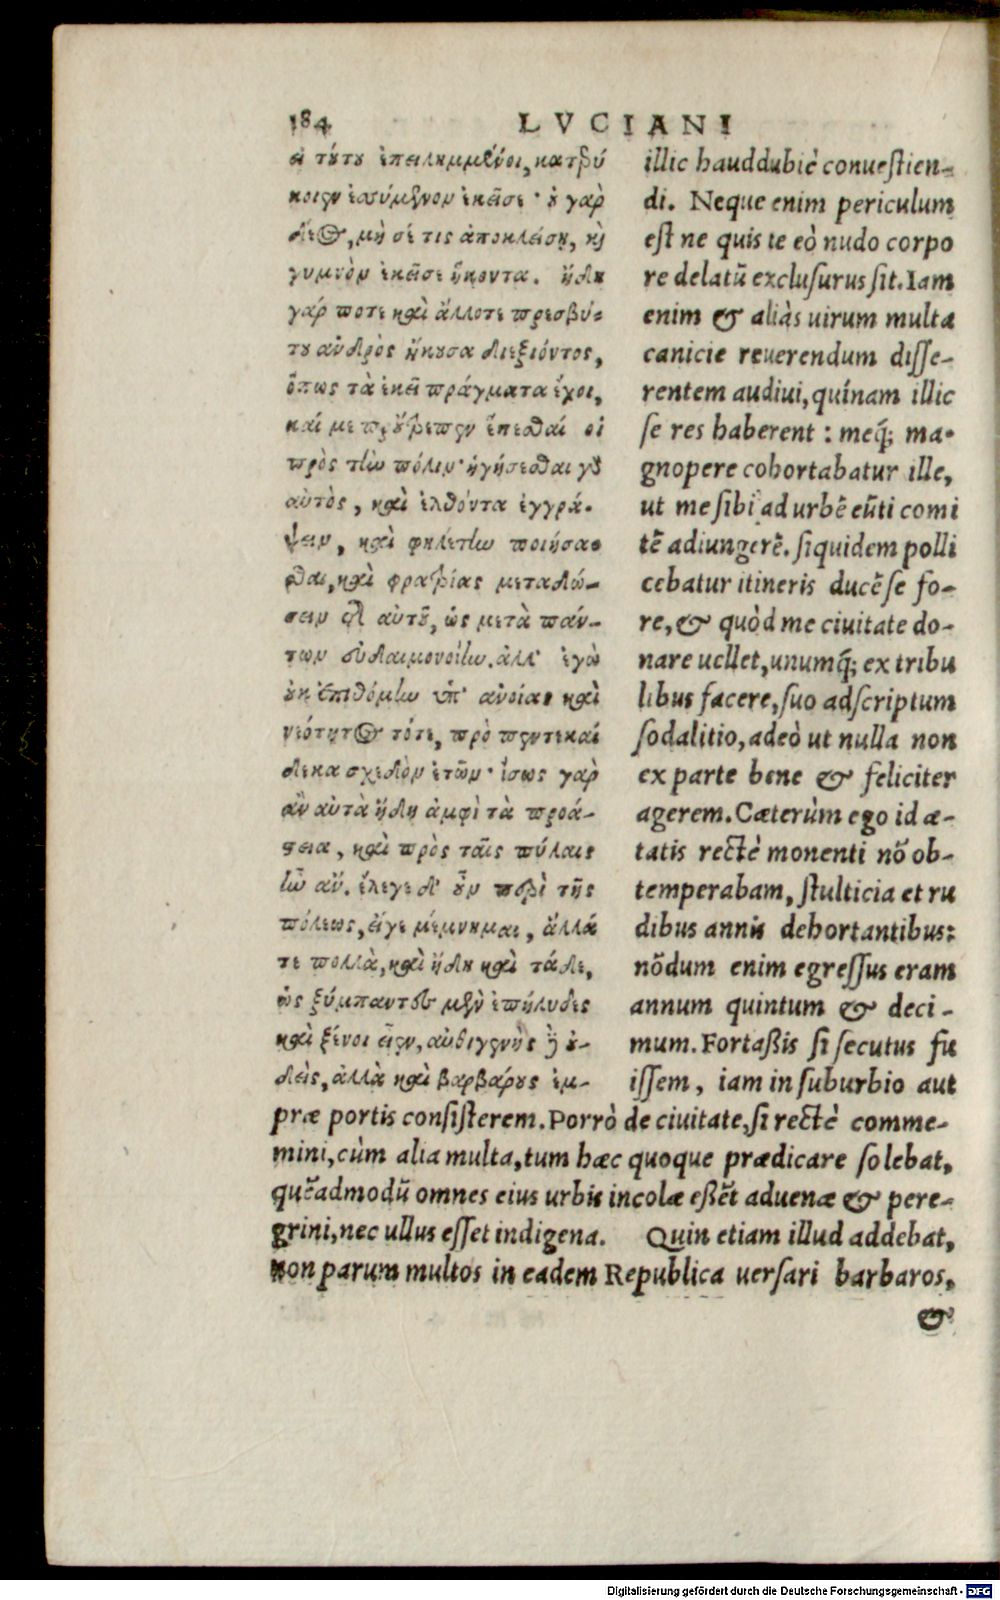 184 LVCIANI
ει τύτυ ἐπειλημμένοι, κατ
κοιεν ἐσσύμενον ἐκεῖσε· ὐ γαρ
δέος, μή σέ τις ἀποκλείσῃ, καὶ
γυμνὸν ἐκεῖσε ἥκοντα. ἤδη
γάρ ποτε καὶ ἄλλοτε πρεσβύ-
του ἀνδρὸς ἤκουσα διεξιόντος,
ὅπως τὰ ἐκεῖ πράγματα ἔχοι,
καί με προὔτρεπεν ἕπεσθαί οἱ
πρὸς τὴν πόλιν· ἡγήσεσθαι γὰρ
αὐτὸς, καὶ ἐλθόντα ἐγγρά-
ψειν, καὶ φηλέτην ποιήσα-
σθαι, καὶ φρατρίας μεταδώ-
σειν τῆς αὐτοῦ, ὡς μετὰ πάν-
των εὐδαιμονοίην. ἀλλ' ἐγὼ
οὐκ ἐπιθόμην ὑπ' ἀνοίας καὶ
νεότητος τότε, πρὸ πεντεκαί
δεκα σχεδὸν ἐτῶν· ἴσως γὰρ
ἂν αὐτὰ ἤδη ἀμφὶ τὰ προά-
στεια, καὶ πρὸς ταῖς πύλαις
ἦν ἄν. ἔλεγε δ' οὖν περὶ τῆς
πόλεως, εἴγε μέμνημαι, ἄλλά
τε πολλὰ, καὶ ἤδη καὶ τάδε,
ὡς ξύμπαντες μὲν ἐπήλυδες
καὶ ξένοι εἶεν, αὐθιγενὴς δὲ οὐ-
δεὶς, ἀλλὰ καὶ βαρβάρους ἐμ-
illic hauddubiè conuestien-
di. Neque enim periculum
est ne quis te eò nudo corpo
re delatū exclusurus sit. Iam
enim & aliàs uirum multa
canicie reuerendum disse-
rentem audiui, quínam illic
se res haberent : meq́; ma-
gnopere cohortabatur ille,
ut me sibi ad urbē eūti comi
tē adiungerē. siquidem polli
cebatur itineris ducē se fo-
re, & quòd me ciuitate do-
nare uellet, unumq́; ex tribu
libus facere, suo adscriptum
sodalitio, adeò ut nulla non
ex parte bene & feliciter
agerem. Cæterùm ego id æ-
tatis rectè monenti nō ob-
temperabam, stulticia et ru
dibus annis dehortantibus:
nōdum enim egressus eram
annum quintum & deci-
mum. Fortaßis si secutus fu
issem, iam in suburbio aut
præ portis consisterem. Porrò de ciuitate, si rectè comme-
mini, cùm alia multa, tum hæc quoque prædicare solebat,
quēadmodū omnes eius urbis incolæ eßēt aduenæ & pere-
grini, nec ullus esset indigena. Quin etiam illud addebat,
non parum multos in eadem Republica uersari barbaros,
&
Digitalisierung gefördert durch die Deutsche Forschungsgemeinschaft - DFG